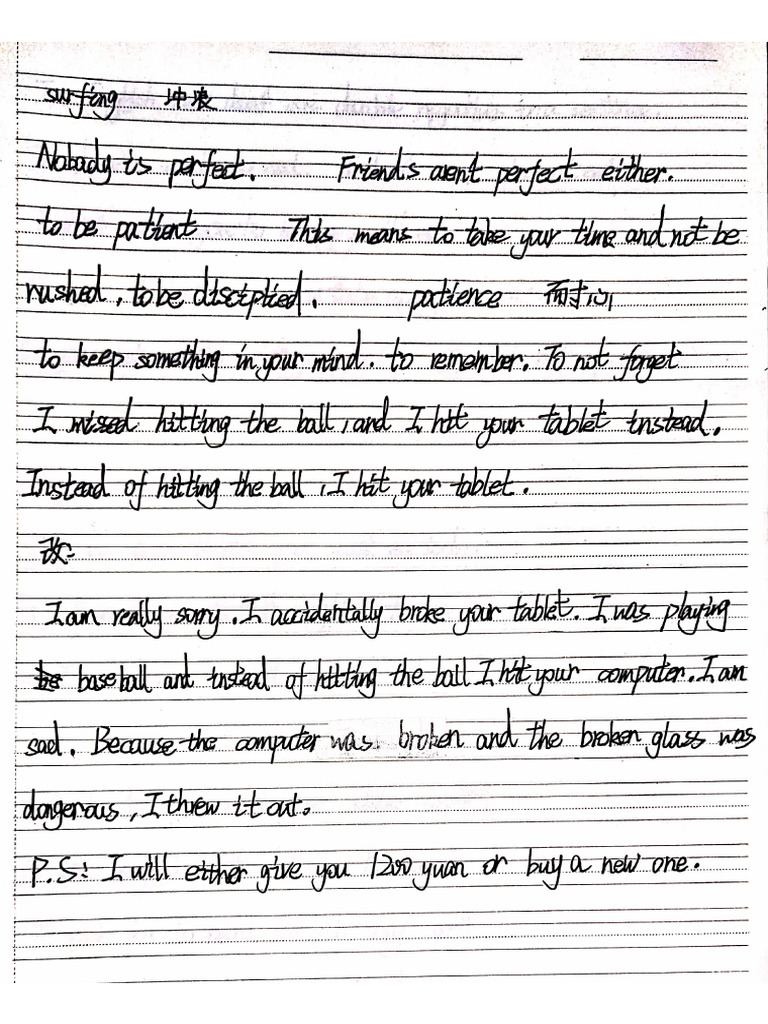 surfing 冲浪
Nobady is perfect. Friends arent perfect either.
to be patient This means to take your time and not be
rushed, to be disciplied. patience 耐心
to keep something in your mind. to remember. To not forget
I missed hitting the ball, and I hit your tablet instead.
Instead of hitting the ball, I hit your tablet.
改:
I am really sorry. I accidentally broke your tablet. I was playing
baseball and instead of hitting the ball I hit your computer. I am
sad. Because the computer was broken and the broken glass was
dangerous, I threw it out.
P.S: I will either give you 1200 yuan or buy a new one.